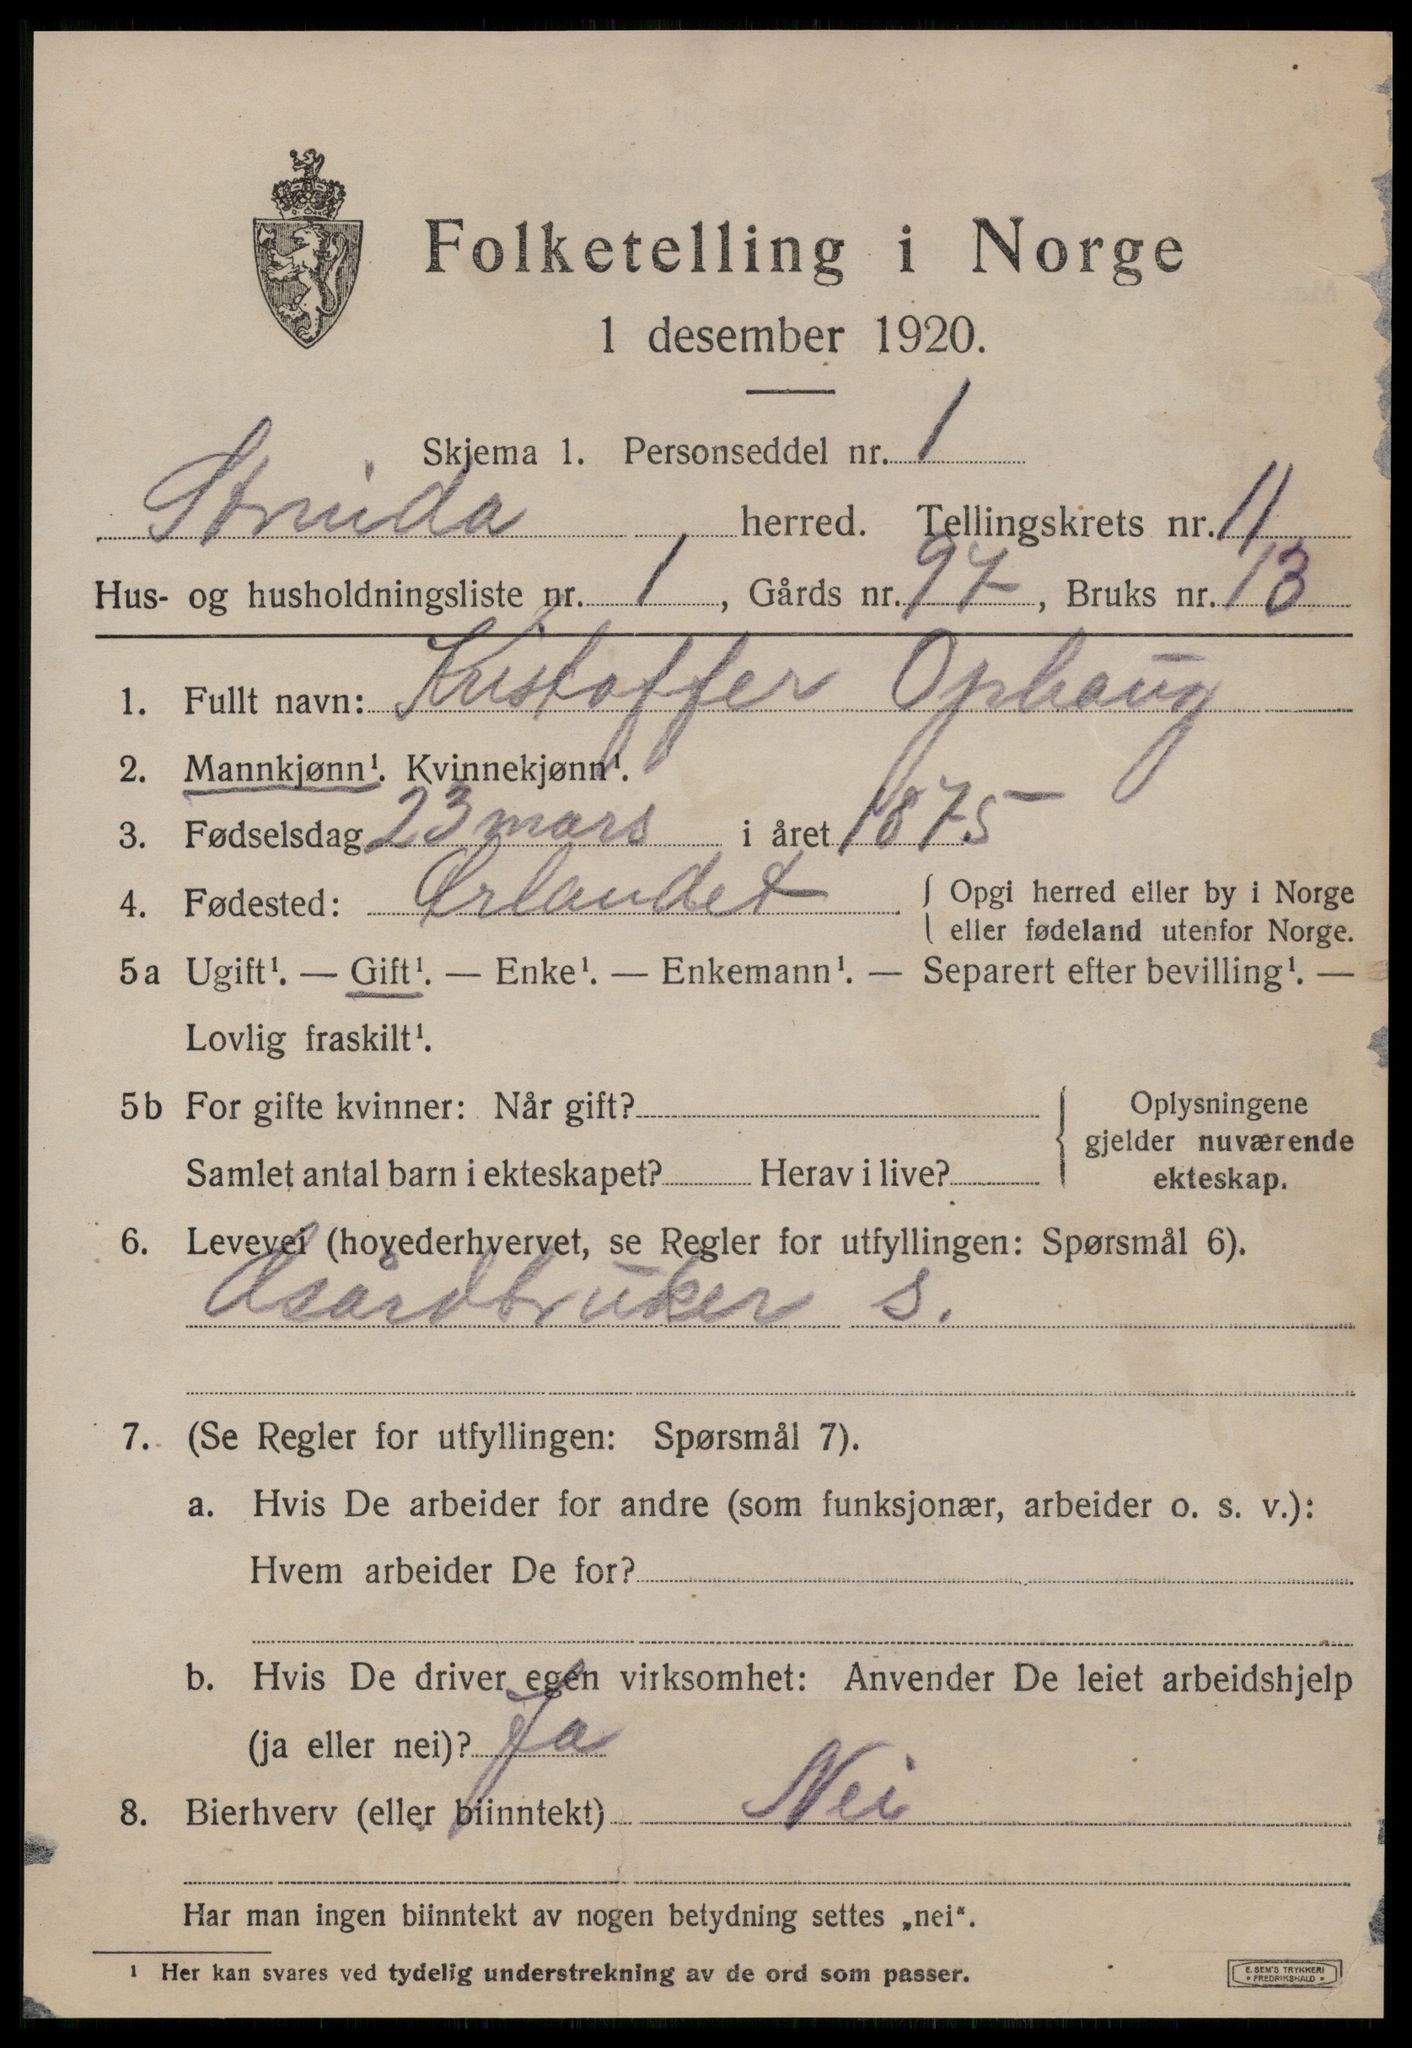 Folketelling i Norge
1 desember 1920.
Skjema 1. Personseddel nr. 1
Strinda herred. Tellingskrets nr. 11
Hus- og husholdningsliste nr. 1, Gårds nr. 97, Bruks nr. 13
1. Fullt navn: Kristoffer Ophaug
2. Mannkjønn¹. Kvinnekjønn¹.
3. Fødselsdag 23 mars i året 1875
4. Fødested: Ørlandet { Opgi herred eller by i Norge
eller fødeland utenfor Norge.
5a Ugift¹. — Gift¹. — Enke¹. — Enkemann¹. — Separert efter bevilling¹. —
Lovlig fraskilt¹.
5b For gifte kvinner: Når gift?
Samlet antal barn i ekteskapet? Herav i live?
Oplysningene
gjelder nuværende
ekteskap.
6. Levevei (hovederhvervet, se Regler for utfyllingen: Spørsmål 6).
Gårdbruker s.
7. (Se Regler for utfyllingen: Spørsmål 7).
a. Hvis De arbeider for andre (som funksjonær, arbeider o. s. v.):
Hvem arbeider De for?
b. Hvis De driver egen virksomhet: Anvender De leiet arbeidshjelp
(ja eller nei)? Ja
8. Bierhverv (eller biinntekt) Nei
Har man ingen biinntekt av nogen betydning settes „nei“.
¹ Her kan svares ved tydelig understrekning av de ord som passer.
E. SEM'S TRYKKERI
* FREDRIKSHALD *